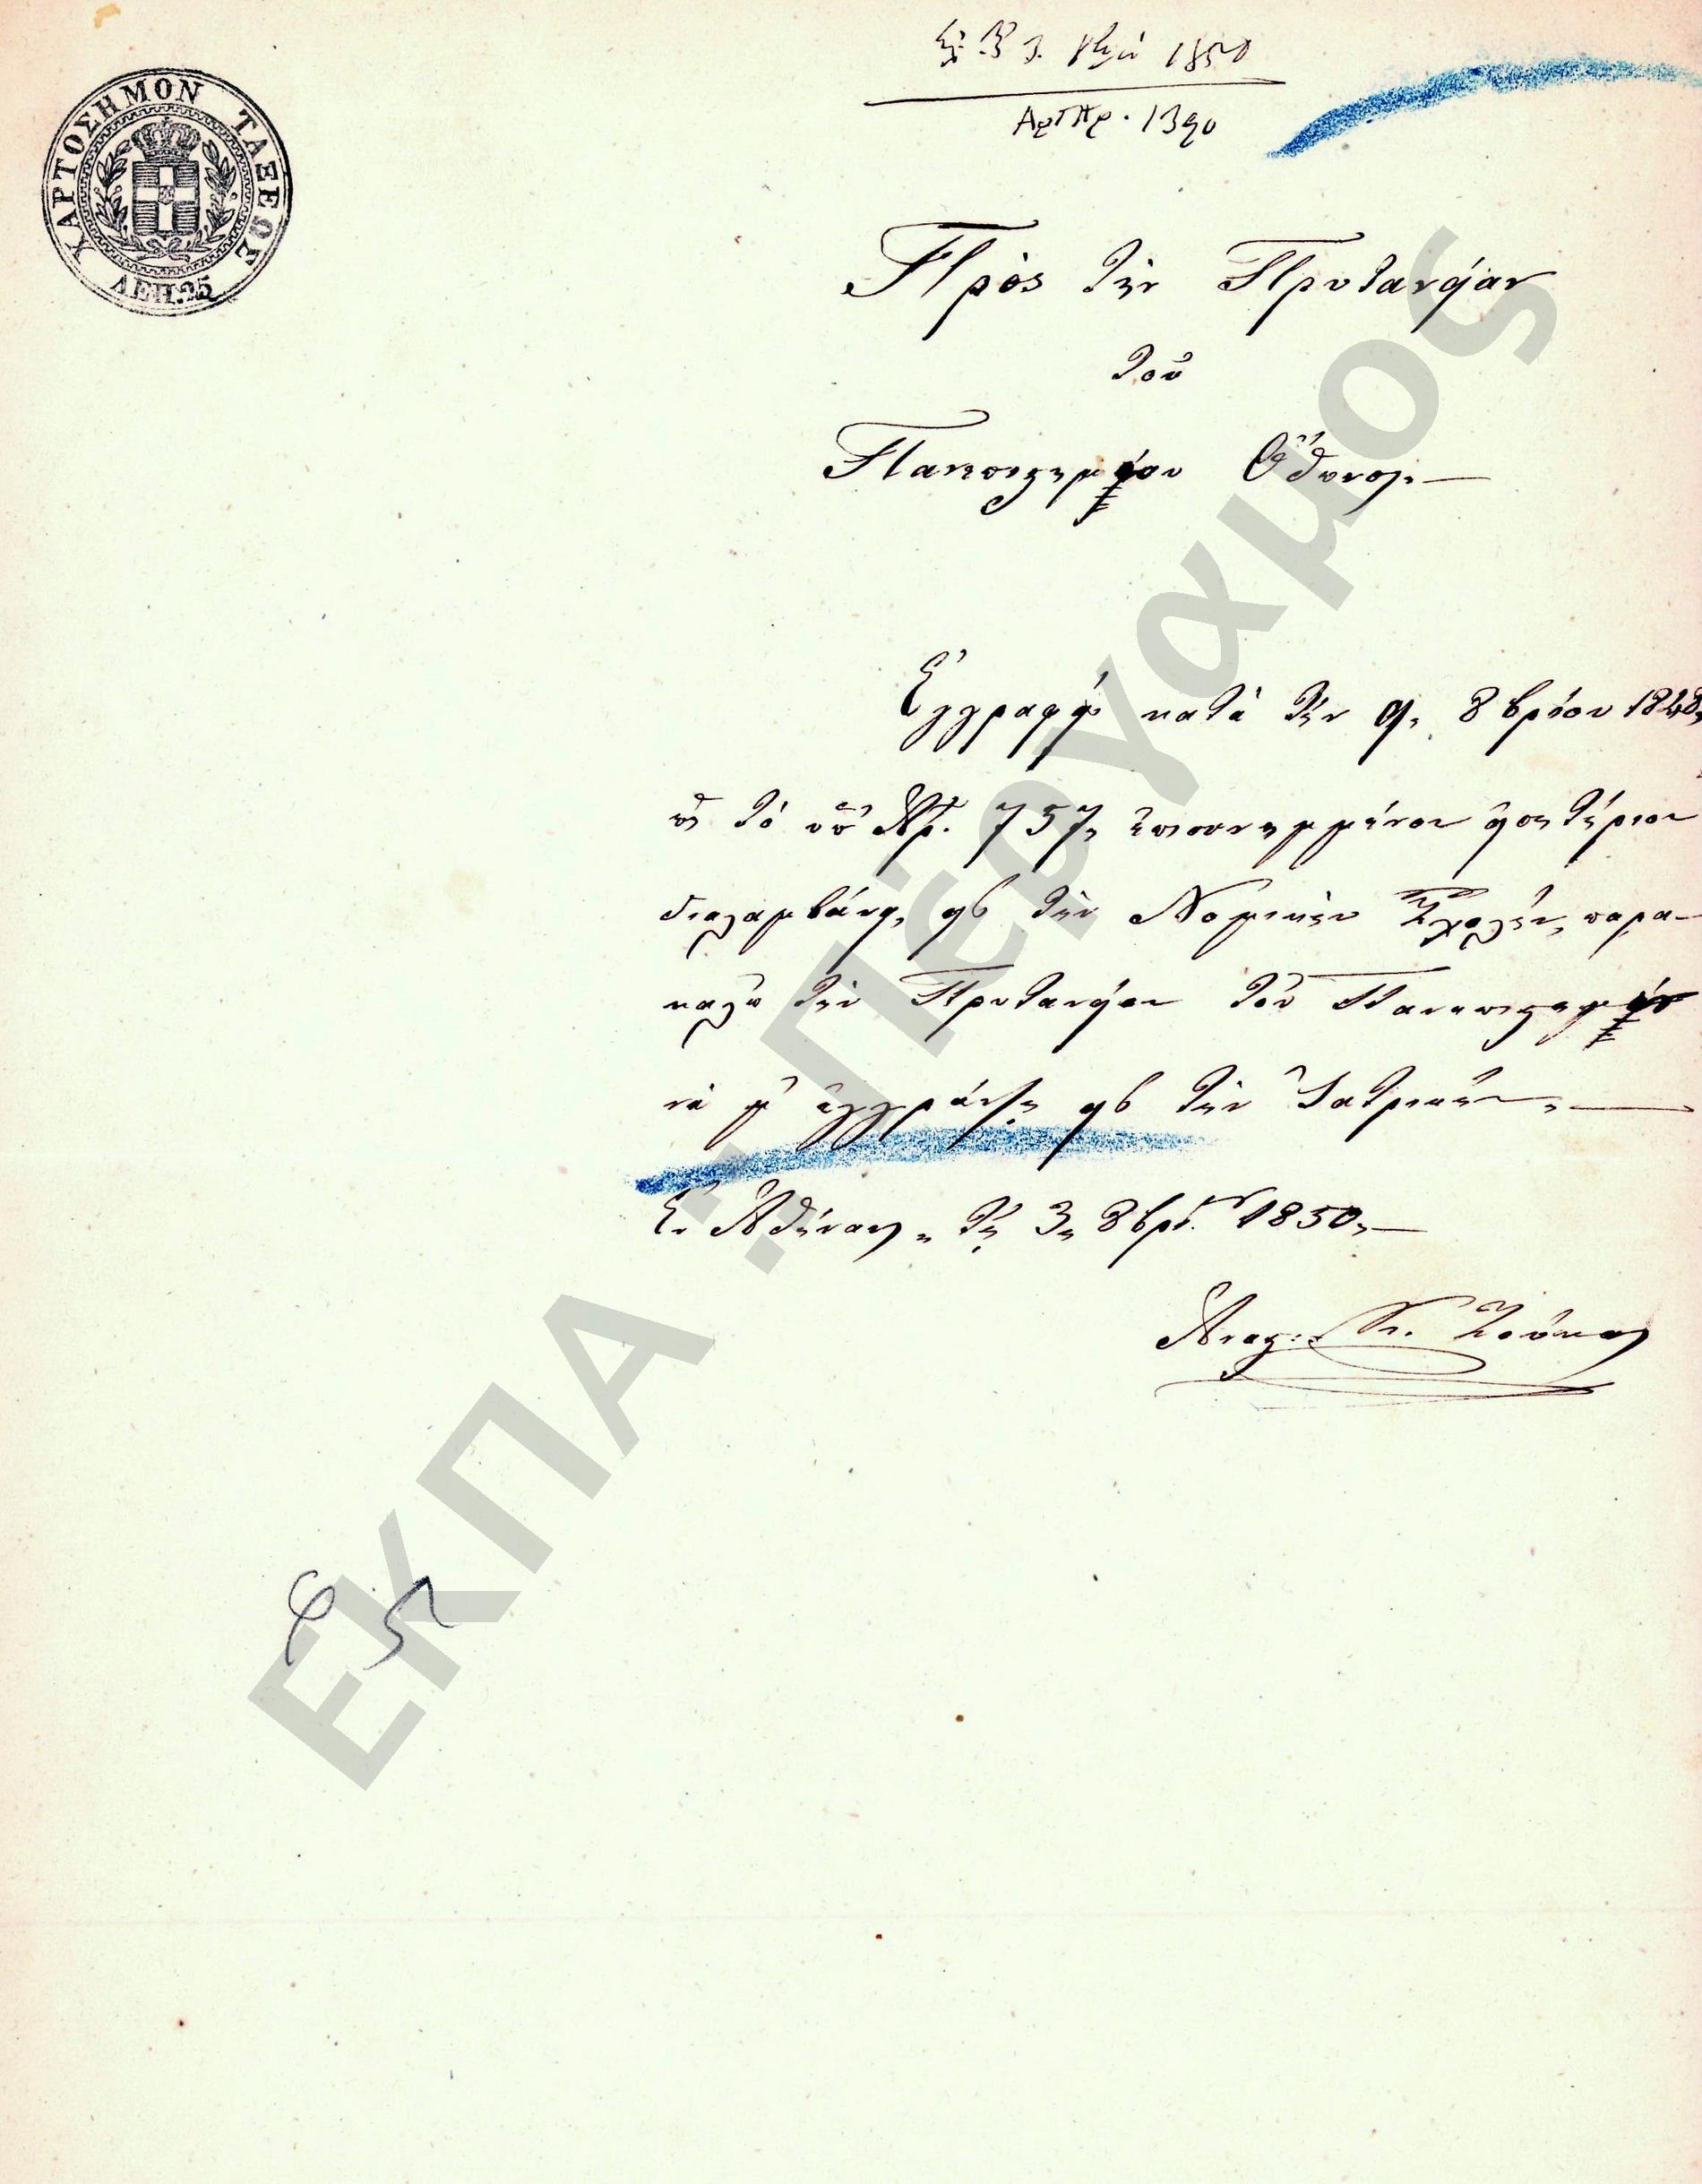 ΧΑΡΤΟΣΗΜΟΝ ΤΑΞΕΩΣ
ΛΕΠ. 25
3. 1850
ΑρΠρ. 1390
Πρὸς τὴν Πρυτανείαν
τοῦ
Πανεπιστημείου Ὄθωνος
Ἐγγραφεὶς κατὰ τὴν 9 8βρίου 1848,
ὡς τὸ ὑπ' Ἀρ. 757, ἐπισυνημμένον εἰσιτήριον
διαλαμβάνει, εἰς τὴν Νομικὴν Σχολήν, παρα-
καλῶ τὴν Πρυτανείαν τοῦ Πανεπιστημείου
νὰ μ' ἐγγράψῃ εἰς τὴν Ἰατρικήν.
Ἐν Ἀθήναις τῇ 3 8βρ. 1850,
Ἀναγ.
ΕΚΠΑ - Πέργαμος